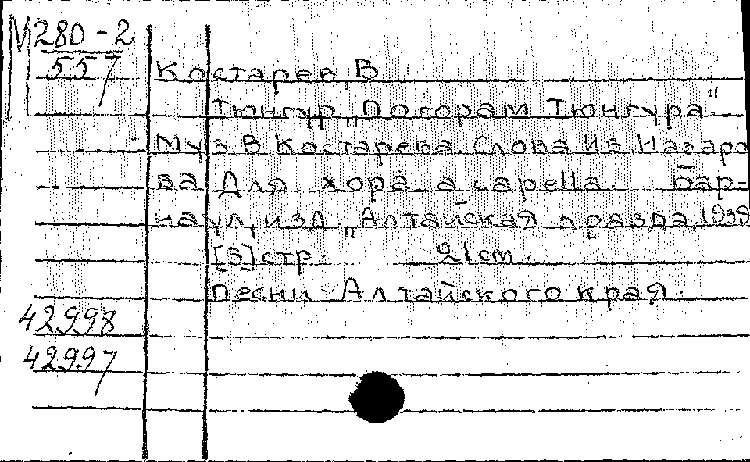 М280-2
557
Костарев, В
Тюнгур „По горам Тюнгура"
Муз В Костарева Слова Ив Назаро
ва Для хора a capella. Бар-
наул, изд „Алтайская правда 1939
[3] стр. 21 cm.
Песни Алтайского края.
42998
42997